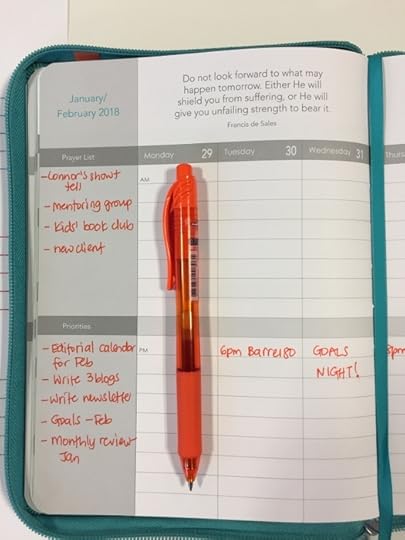 January/
February 2018
Do not look forward to what may
happen tomorrow. Either He will
shield you from suffering, or He will
give you unfailing strength to bear it.
Francis de Sales
Prayer List
Monday 29
Tuesday 30
Wednesday 31
Thurs
AM
-Connor's show+
tell
- mentoring group
- Kids' book club
- new client
Priorities
PM
- Editorial calendar
for Feb
- Write 3 blogs
- Write newsletter
- Goals - Feb
- Monthly review
Jan
6pm Barre180
GOALS
NIGHT!